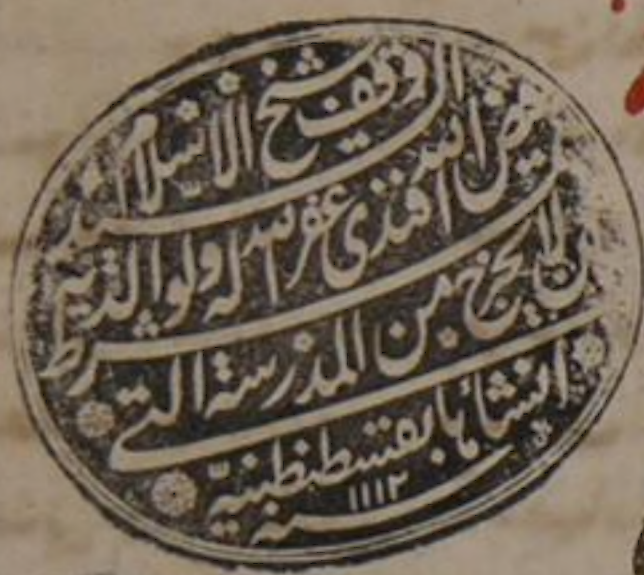 وقف شيخ الاسلام السيد
فيض الله افندى غفر الله له ولوالديه
بشرط ان لا يخرج من المدرسة التي
انشأها بقسطنطينية
سنة ١١١٢